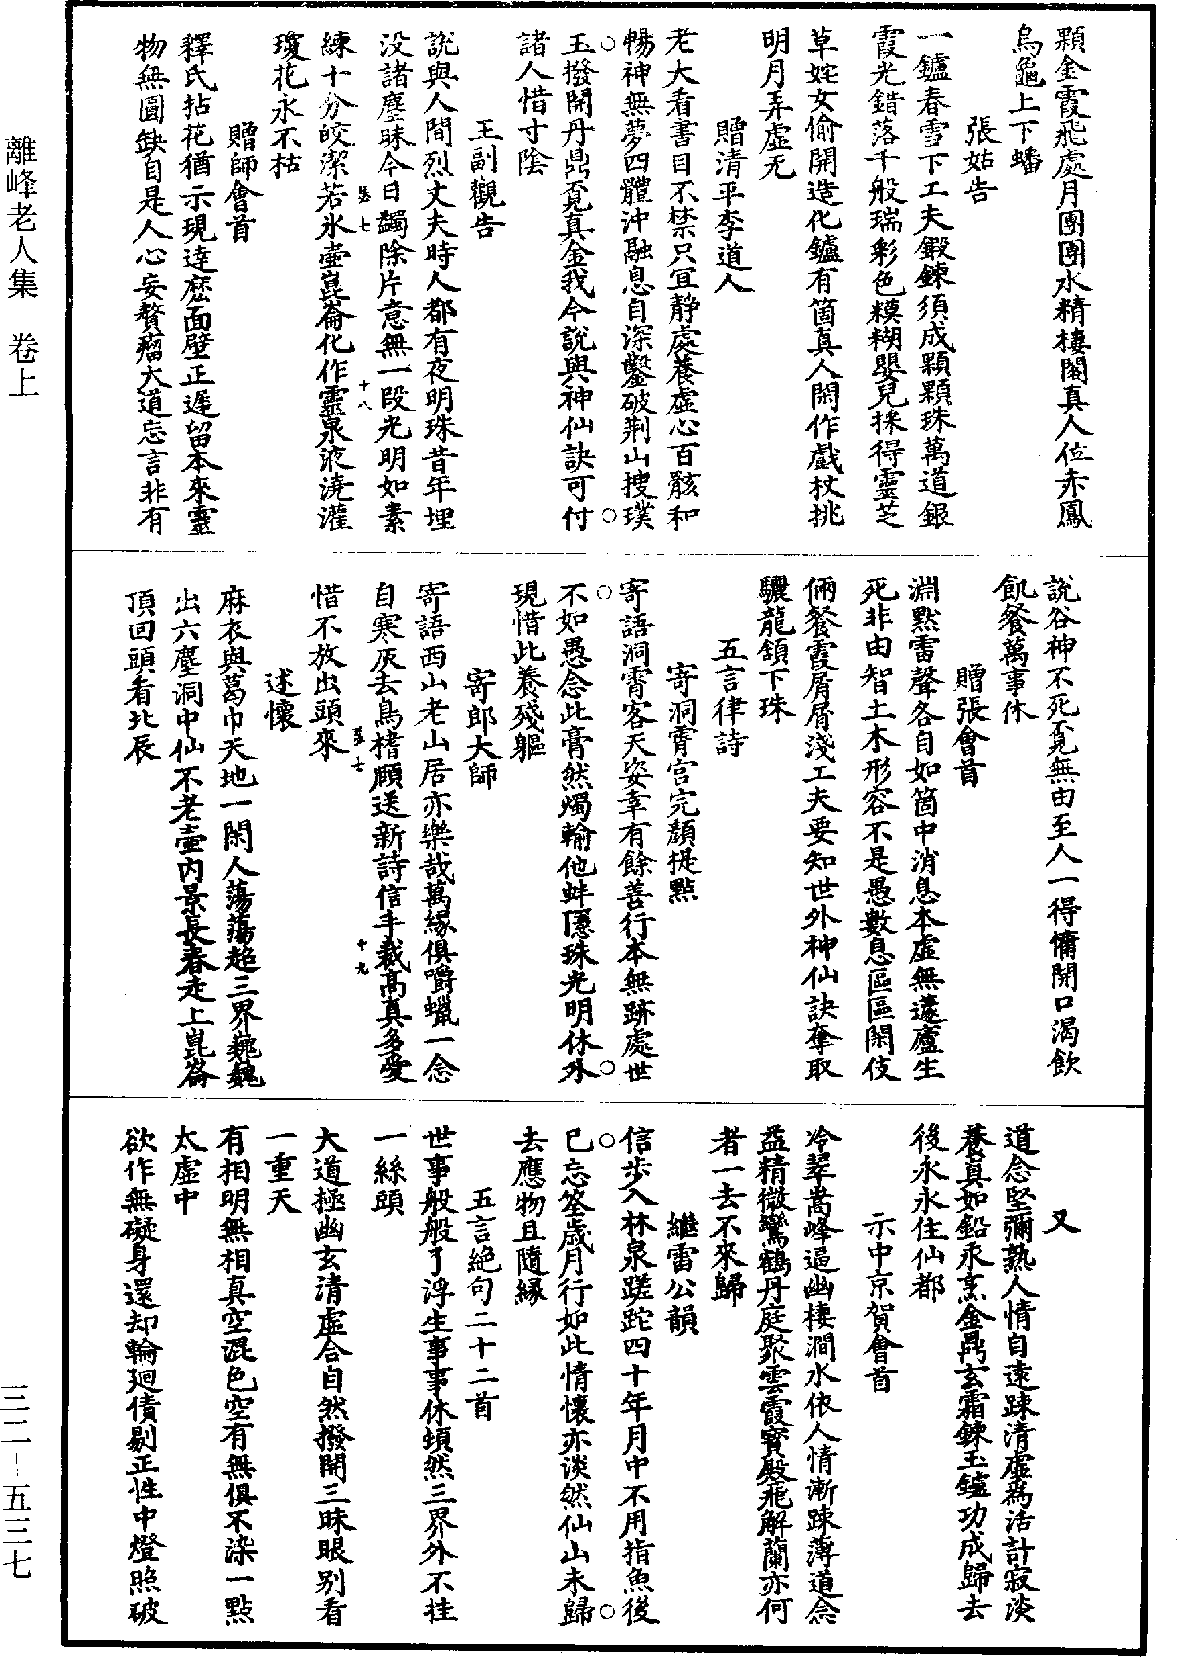 離峰老人集　卷上
三二－五三七
顆金霞飛處月團團水精樓閣真人位赤鳳
烏龜上下蟠
張姑告
一鑪春雪下工夫鍛鍊須成顆顆珠萬道銀
霞光錯落千般瑞彩色糢糊嬰兒採得靈芝
草姹女偷開造化鑪有箇真人閑作戲杖挑
明月弄虛无
贈清平李道人
老大看書目不禁只宜靜處養虛心百骸和
暢神無夢四體沖融息自深鑿破荆山搜璞
玉撥開丹鼎覓真金我今說與神仙訣可付
諸人惜寸陰
王副觀告
說與人間烈丈夫時人都有夜明珠昔年埋
没諸塵昧今日蠲除片意無一段光明如素
練十分皎潔若氷壺崑崙化作靈泉液澆灌
瓊花永不枯
贈師會首
釋氏拈花猶示現達麽面壁正遲留本來靈
物無圓缺自是人心妄贅瘤大道忘言非有
說谷神不死覓無由至人一得慵開口渴飲
飢餐萬事休
贈張會首
淵默雷聲各自如箇中消息本虛無蘧廬生
死非由智土木形容不是愚數息區區閑伎
倆餐霞屑屑淺工夫要知世外神仙訣奪取
驪龍頷下珠
五言律詩
寄洞霄宫完顏提點
寄語洞霄客天姿幸有餘善行本無跡處世
不如愚念此膏然燭輸他蚌隱珠光明休外
現惜此養殘軀
寄郎大師
寄語西山老山居亦樂哉萬緣俱嚼蠟一念
自寒灰去鳥楮頤送新詩信手裁高真多愛
惜不放出頭來
述懷
麻衣與葛巾天地一閑人蕩蕩超三界巍巍
出六塵洞中仙不老壷内景長春走上崑崙
頂回頭看北辰
又
道念堅彌熟人情自遠踈清虛爲活計寂淡
養真如鉛汞烹金鼎玄霜鍊玉鑪功成歸去
後永永住仙都
示中京賀會首
冷翠嵩峰逼幽棲澗水依人情漸踈薄道念
益精微鸞鶴丹庭聚雲霞寳殿飛解蘭亦何
者一去不來歸
繼雷公韻
信步入林泉蹉跎四十年月中不用指魚後
已忘筌歲月行如此情懷亦淡然仙山未歸
去應物且隨緣
五言絕句二十二首
世事般般了浮生事事休頓然三界外不挂
一絲頭
大道極幽玄清虛合自然撥開三昧眼别看
一重天
有相明無相真空混色空有無俱不染一點
太虛中
欲作無礙身還却輪廻債剔正性中燈照破